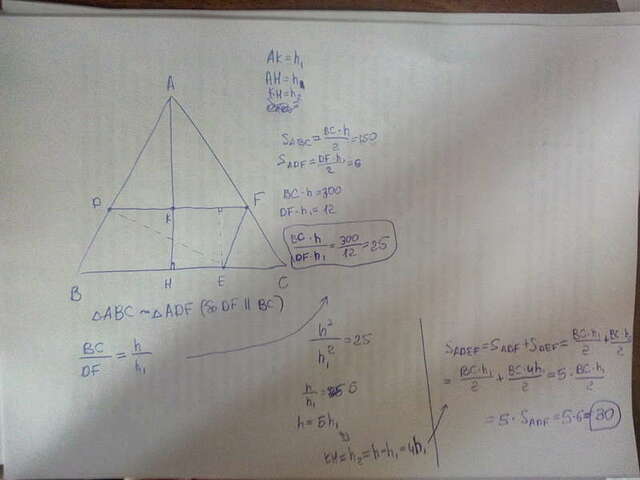 AK = h₁
AH = h
KH = h₂
S_ABC = BC·h / 2 = 150
S_ADF = DF·h₁ / 2 = 6
BC·h = 300
DF·h₁ = 12
BC·h / DF·h₁ = 300 / 12 = 25
A
D
K
F
B
H
E
C
△ABC ~ △ADF (so DF || BC)
BC / DF = h / h₁
h² / h₁² = 25
h / h₁ = 5
h = 5h₁
KH = h₂ = h - h₁ = 4h₁
S_ADEF = S_ADF + S_DEF = BC·h₁ / 2 + BC·h₂ / 2
= BC·h₁ / 2 + BC·4h₁ / 2 = 5 · BC·h₁ / 2
= 5 · S_ADF = 5·6 = 30